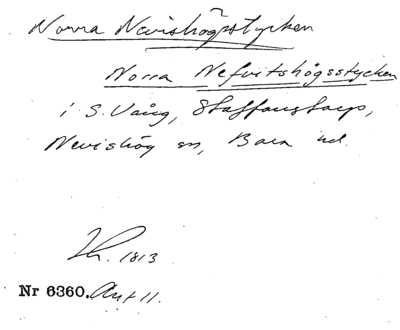 Norra Nevishögsstycken
Norra Nefvitshögsstycken
i S. Vång, Staffanstorp,
Nevishög sn, Bara hd.
1813
Nr 6360. Akt 11.